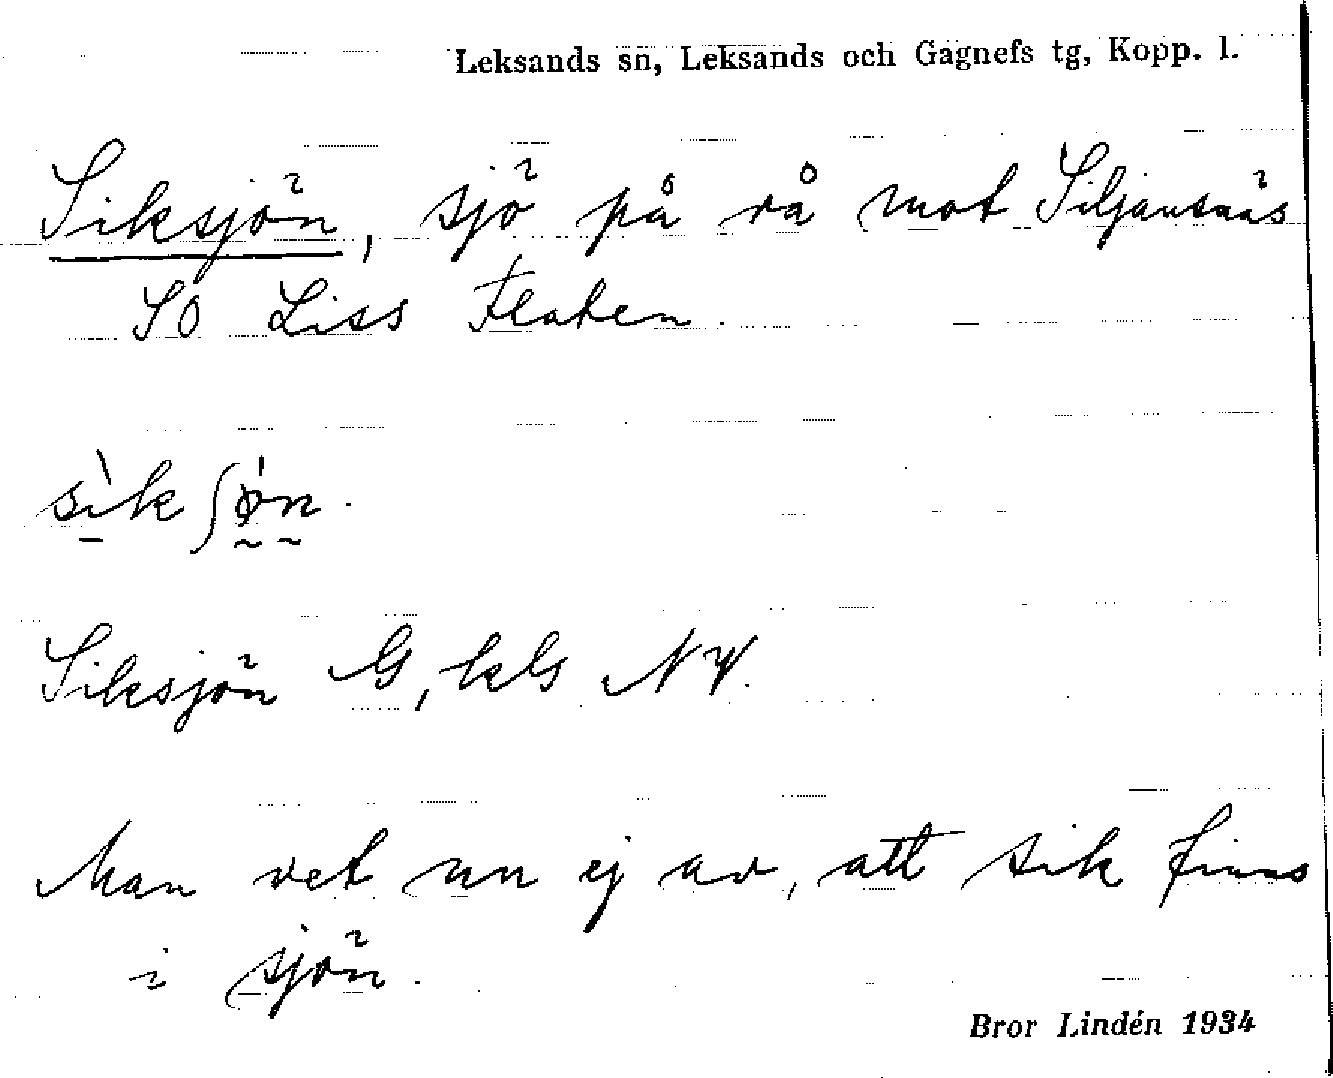 Leksands sn, Leksands och Gagnefs tg, Kopp. l.
Siksjön, sjö på rå mot Siljansnäs
SO Liss Flaten.
sìkʃøn.
Siksjön G, kls NV.
Man vet nu ej av, att sik finns
i sjön.
Bror Lindén 1934